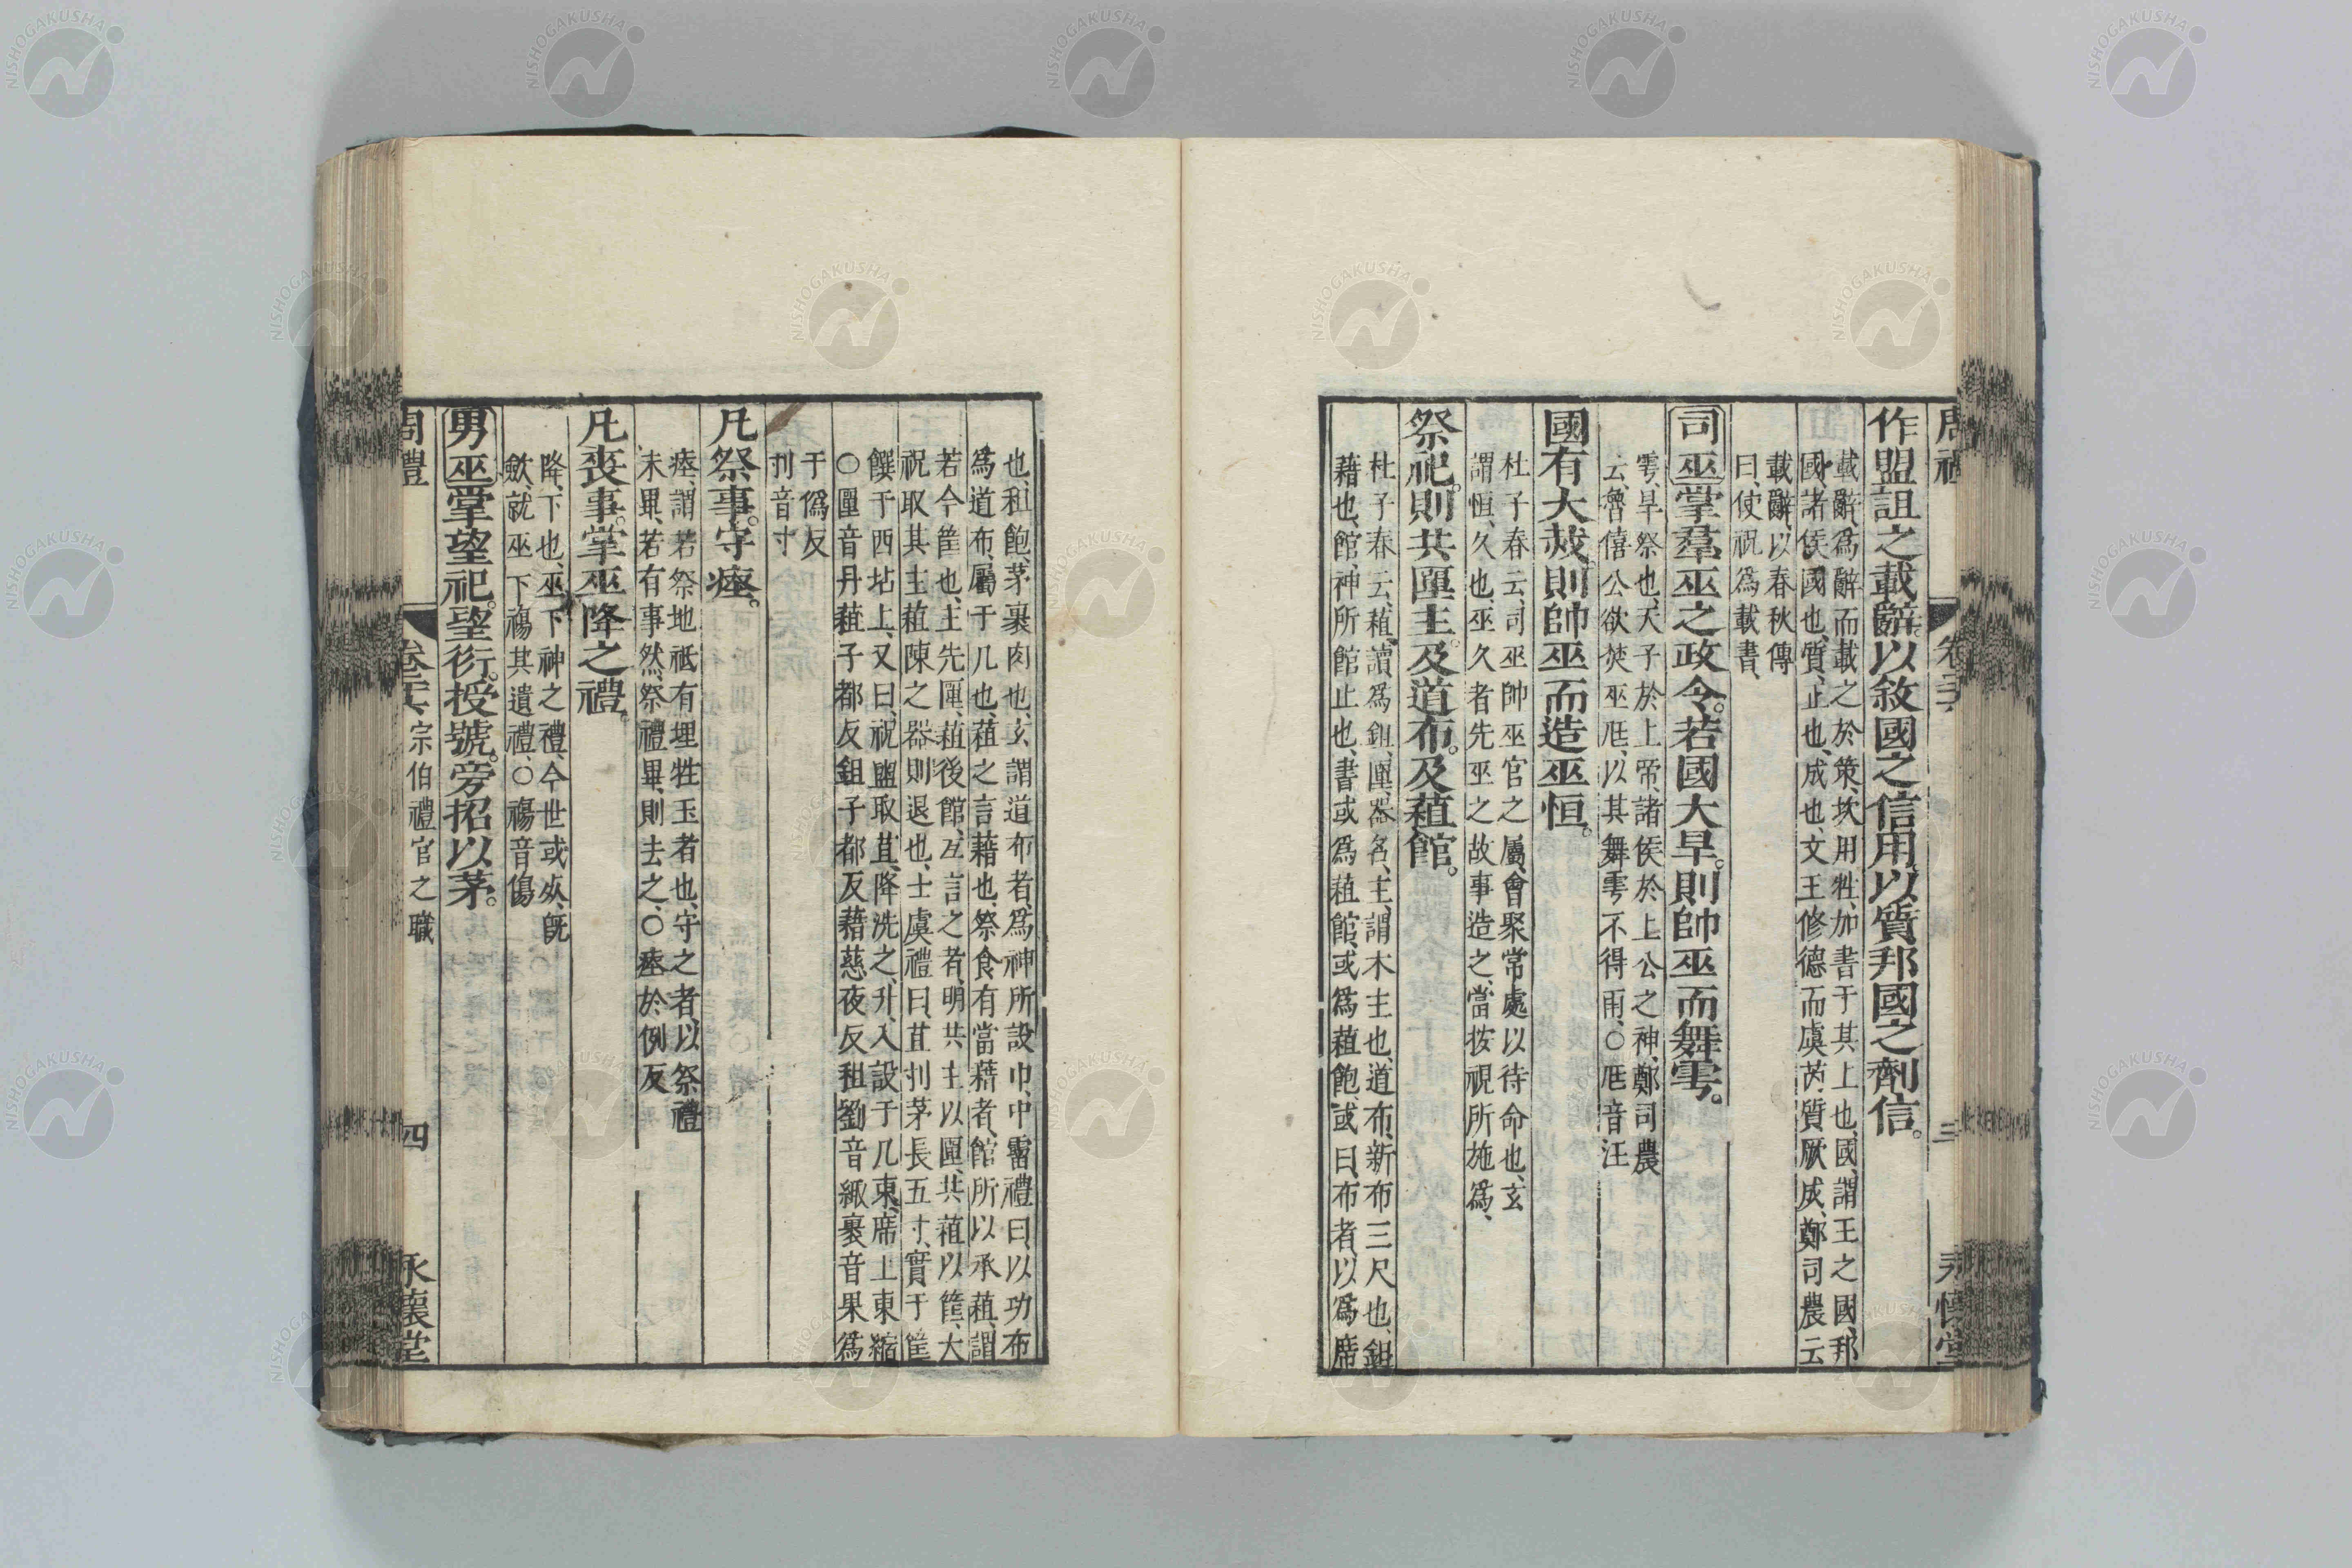 作盟詛之載辭。以敘國之信用。以質邦國之劑信。
載辭、爲辭而載之於策、坎用牲、加書于其上也、國、謂王之國、邦
國、諸侯國也、質、正也、成也、文王修德而虞芮質厥成、鄭司農云
載辭、以春秋傳
曰、使祝爲載書、
司巫掌羣巫之政令。若國大旱。則帥巫而舞雩。
雩、旱祭也、天子於上帝、諸侯於上公之神、鄭司農
云、魯僖公欲焚巫尫、以其舞雩不得雨、○尫音汪
國有大烖。則帥巫而造巫恒。
杜子春云、司巫帥巫官之屬、會聚常處以待命也、玄
謂恒、久也、巫久者先巫之故事造之、當按視所施爲、
祭祀。則共匰主。及道布。及蒩館。
杜子春云、蒩、讀爲鉏、匰、器名、主、謂木主也、道布、新布三尺也、鉏
藉也、館、神所館止也、書或爲蒩館、或爲蒩飽、或曰、布者、以爲席
周禮
三
也、租飽、茅裹肉也、玄謂道布者、爲神所設巾、中霤禮曰、以功布
爲道布、屬于几也、蒩之言藉也、祭食有當藉者、館所以承蒩、謂
若今筐也、主先匰、蒩後館、互言之者、明共主以匰、共蒩以筐、大
祝取其主蒩陳之、器則退也、士虞禮曰、苴刌茅長五寸、實于筐
饌于西坫上、又曰、祝盥取苴、降洗之、升、入設于几東、席上東縮
○匰音丹蒩子都反鉏子都反藉慈夜反租劉音緅裹音果爲
于僞反
刌音寸
凡祭事。守瘞。
瘞、謂若祭地祇有埋牲玉者也、守之者、以祭禮
未畢、若有事然、祭禮畢、則去之、○瘞於例反
凡喪事。掌巫降之禮。
降、下也、巫下神之禮、今世或死、既
斂、就巫下禓、其遺禮、○禓音傷
男巫掌望祀。望衍。授號。旁招以茅。
周禮
宗伯禮官之職
四
永懷堂